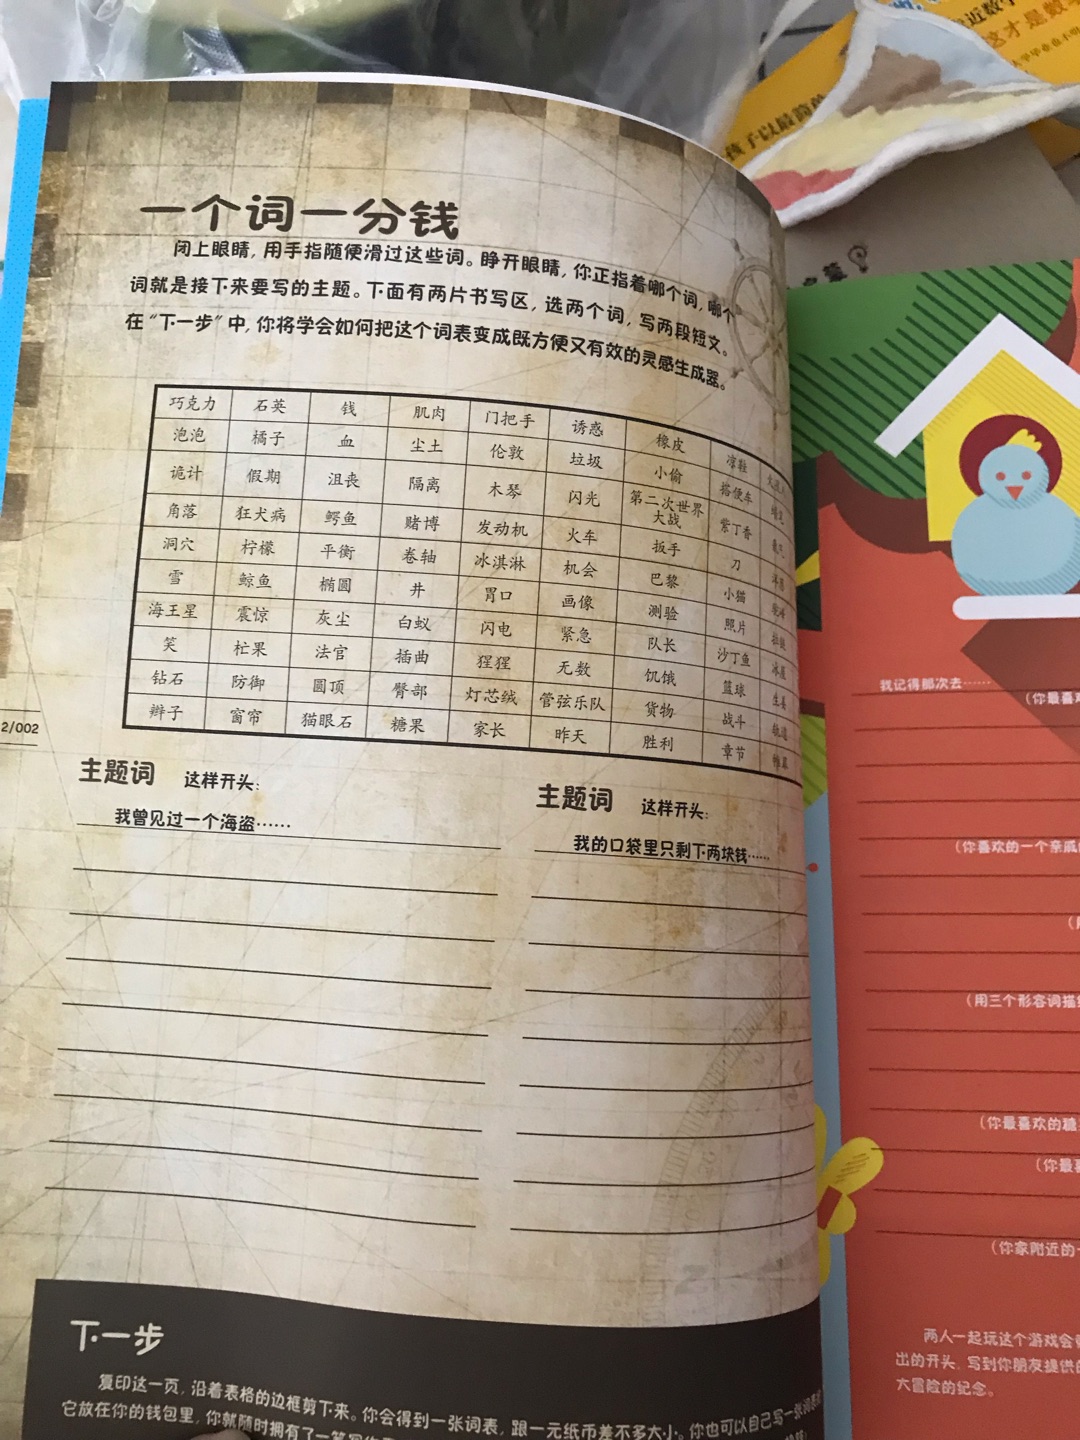 一个词一分钱
闭上眼睛，用手指随便滑过这些词。睁开眼睛，你正指着哪个词，哪个
词就是接下来要写的主题。下面有两片书写区，选两个词，写两段短文。
在“下一步”中，你将学会如何把这个词表变成既方便又有效的灵感生成器。
巧克力 石英 钱 肌肉 门把手 诱惑 橡皮 凉鞋
泡泡 橘子 血 尘土 伦敦 垃圾 小偷 搭便车
诡计 假期 沮丧 隔离 木琴 闪光 第二次世界大战 紫丁香
角落 狂犬病 鳄鱼 赌博 发动机 火车 扳手 刀
洞穴 柠檬 平衡 卷轴 冰淇淋 机会 巴黎 小猫
雪 鲸鱼 椭圆 井 胃口 画像 测验 照片
海王星 震惊 灰尘 白蚁 闪电 紧急 队长 沙丁鱼
笑 杧果 法官 插曲 猩猩 无数 饥饿 篮球
钻石 防御 圆顶 臀部 灯芯绒 管弦乐队 货物 战斗
辫子 窗帘 猫眼石 糖果 家长 昨天 胜利 章节
2/002
主题词 这样开头：
我曾见过一个海盗……
主题词 这样开头：
我的口袋里只剩下两块钱……
下一步
复印这一页，沿着表格的边框剪下来。你会得到一张词表，跟一元纸币差不多大小。你也可以自己写一张词表
它放在你的钱包里，你就随时拥有了一
我记得那次去……
（你最喜
（你喜欢的一个亲戚
（用三个形容词描
（你最喜欢的糖
（你最
（你家附近的一
两人一起玩这个游戏会
出的开头，写到你朋友提供
大冒险的纪念。
孩子以最简
近数学
这才是数